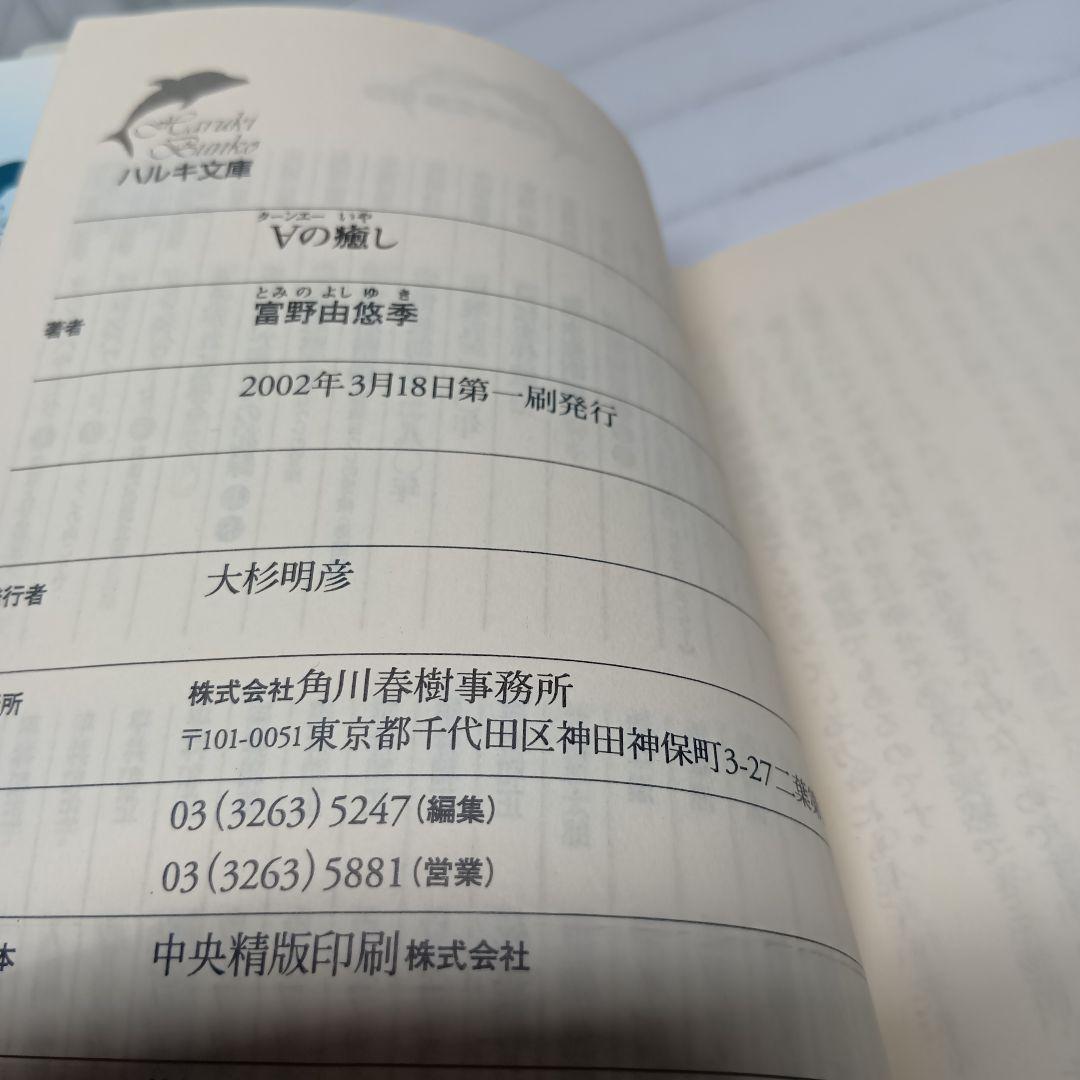 Haruki
Bunko
ハルキ文庫
ターンエー いや
∀の癒し
とみ の よし ゆ き
著者 富野由悠季
2002年3月18日第一刷発行
行者 大杉明彦
所 株式会社角川春樹事務所
〒101-0051東京都千代田区神田神保町3-27二葉
03(3263)5247(編集)
03(3263)5881(営業)
本 中央精版印刷株式会社